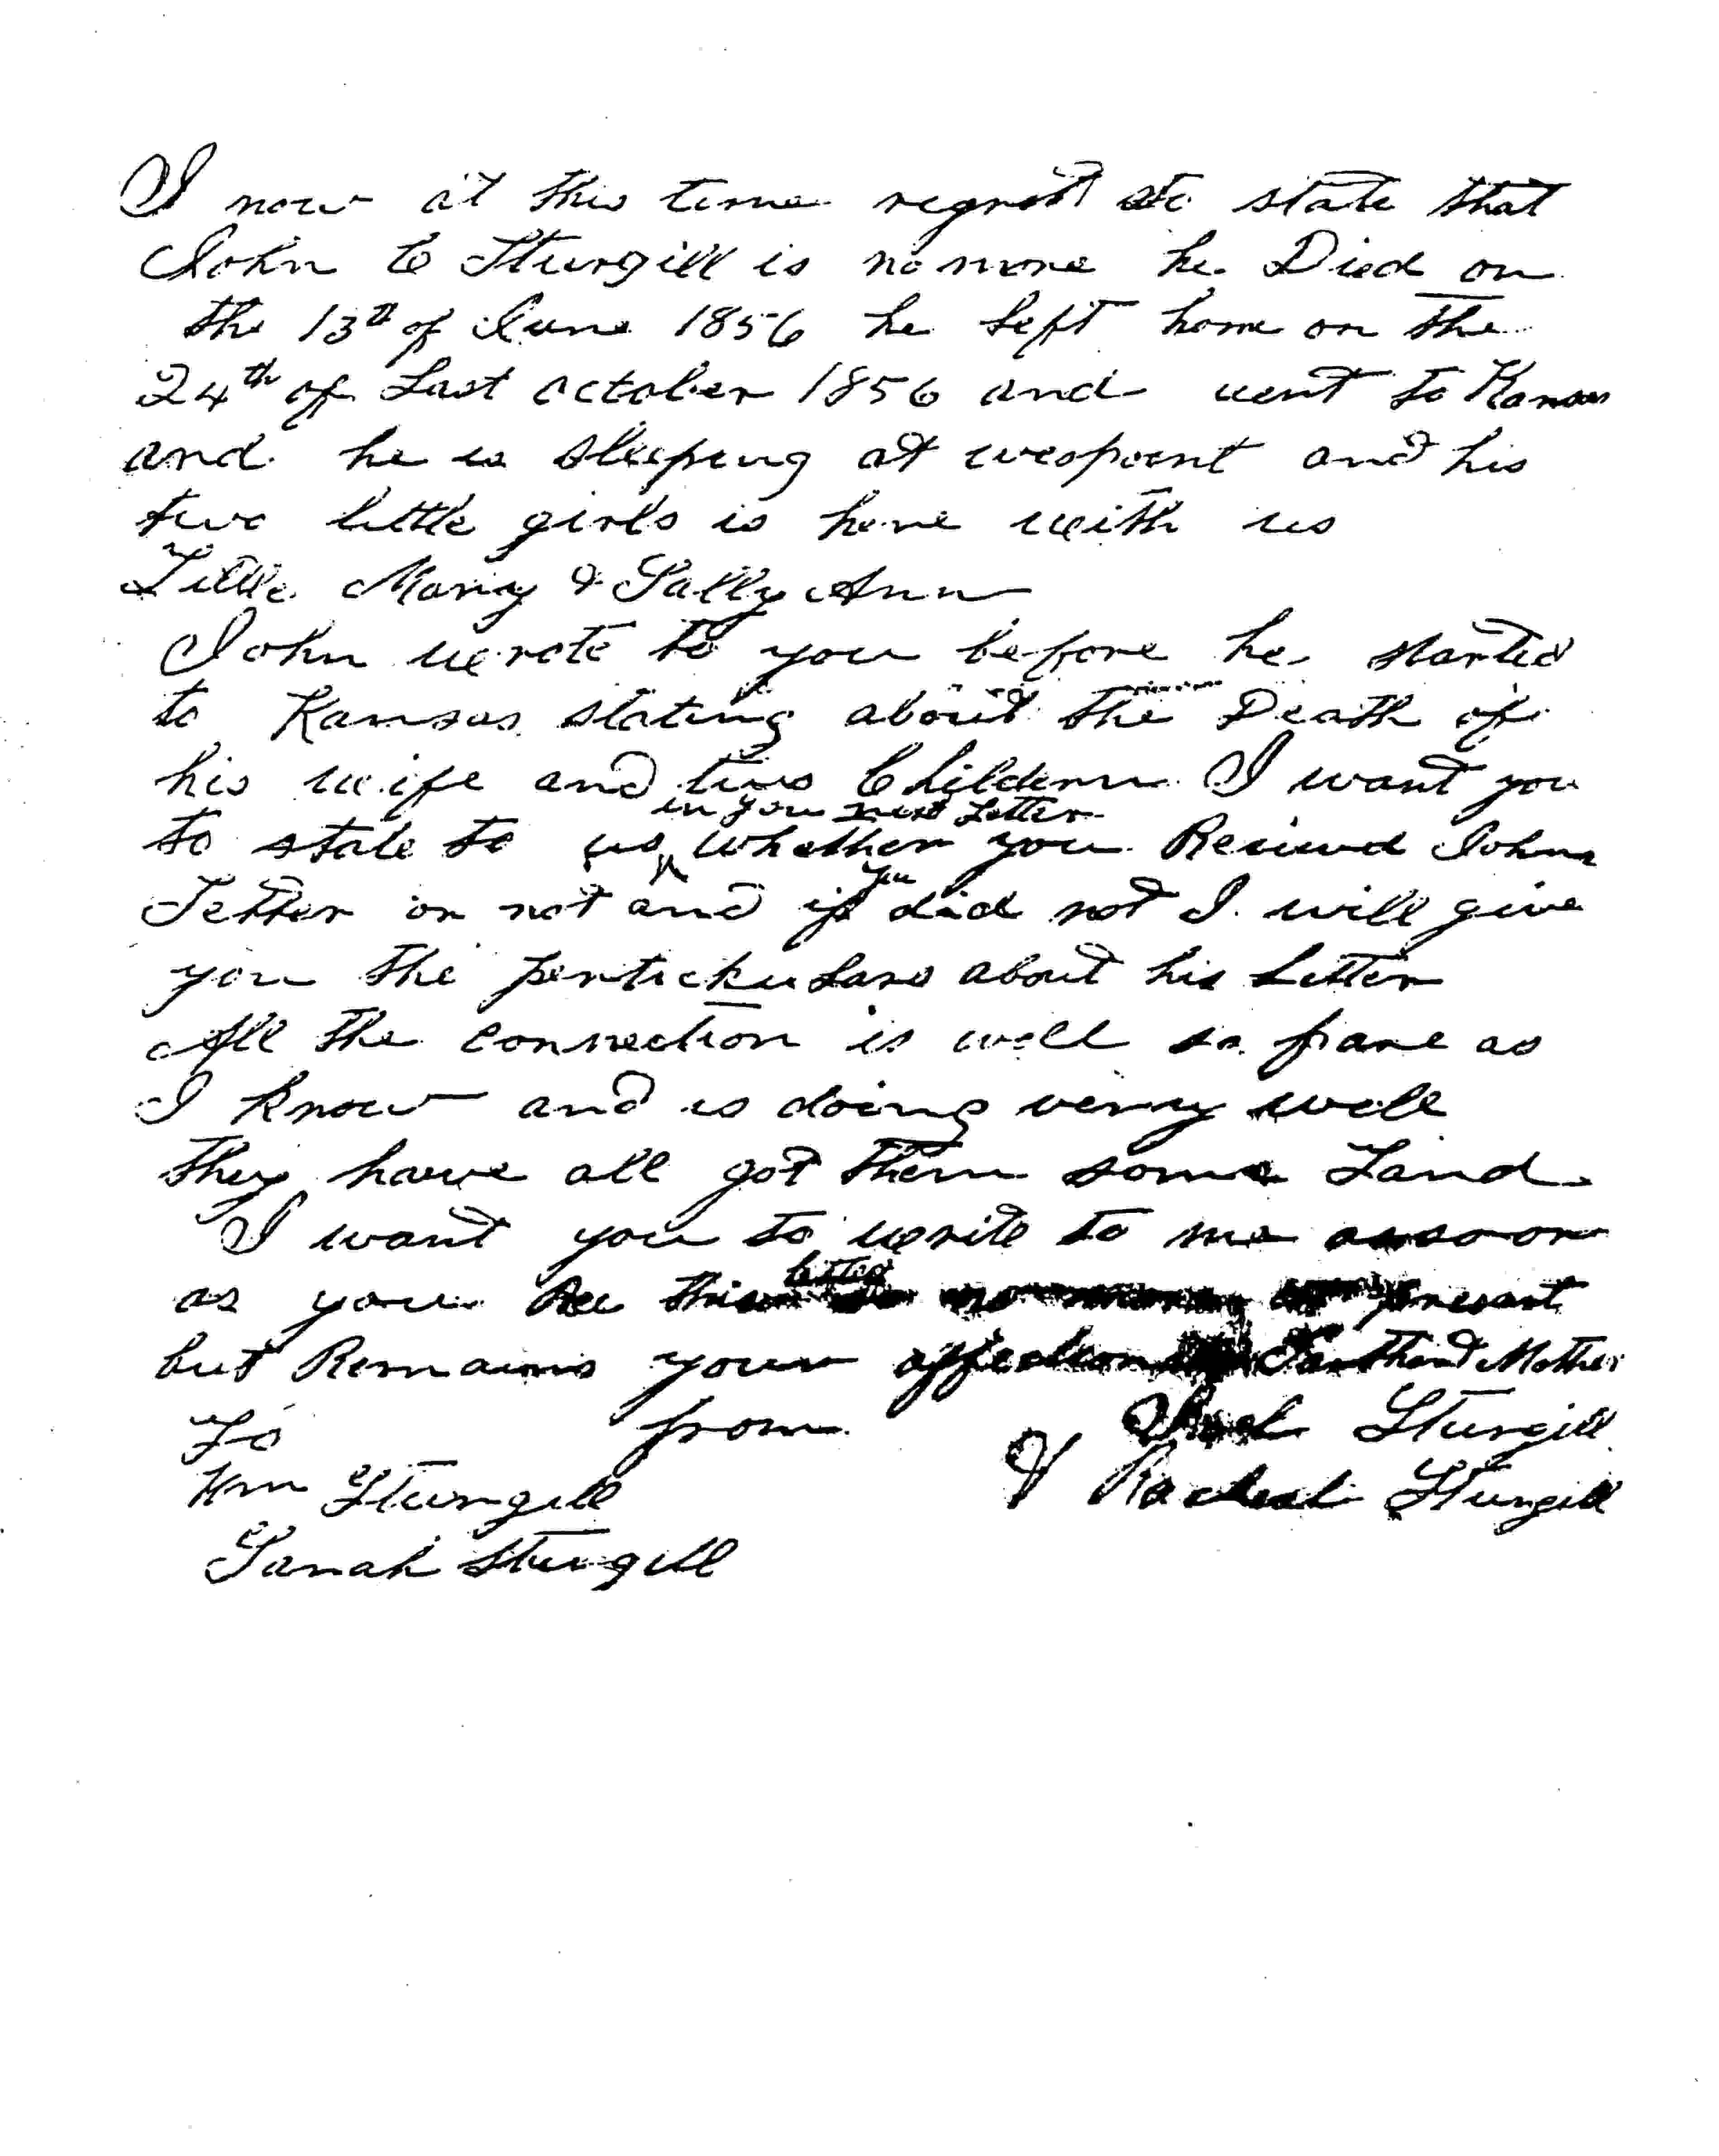 I now at this time regret to state that
John C Sturgill is no more he Died on
the 13th of June 1856 he left home on the
24th of Last october 1856 and went to Kansas
and he is sleeping at wespoint and his
two little girls is here with us
Little Mary & Sally Ann
John wrote to you before he started
to Kansas stating about the Death of
his wife and two Childern I want you
in you next Letter
to state to us whether you Recived Johns
you
Letter or not and if did not I will give
you the pertickulars about his Letter
All the connection is well so fare as
I know and is doing verry well
they have all got them some Land
I want you to write to me assoon
letter
as you Re this no more at presant
but Remains your affection Mother
To from Sturgill
Wm Sturgill & Racheal Sturgill
Sarah Sturgill